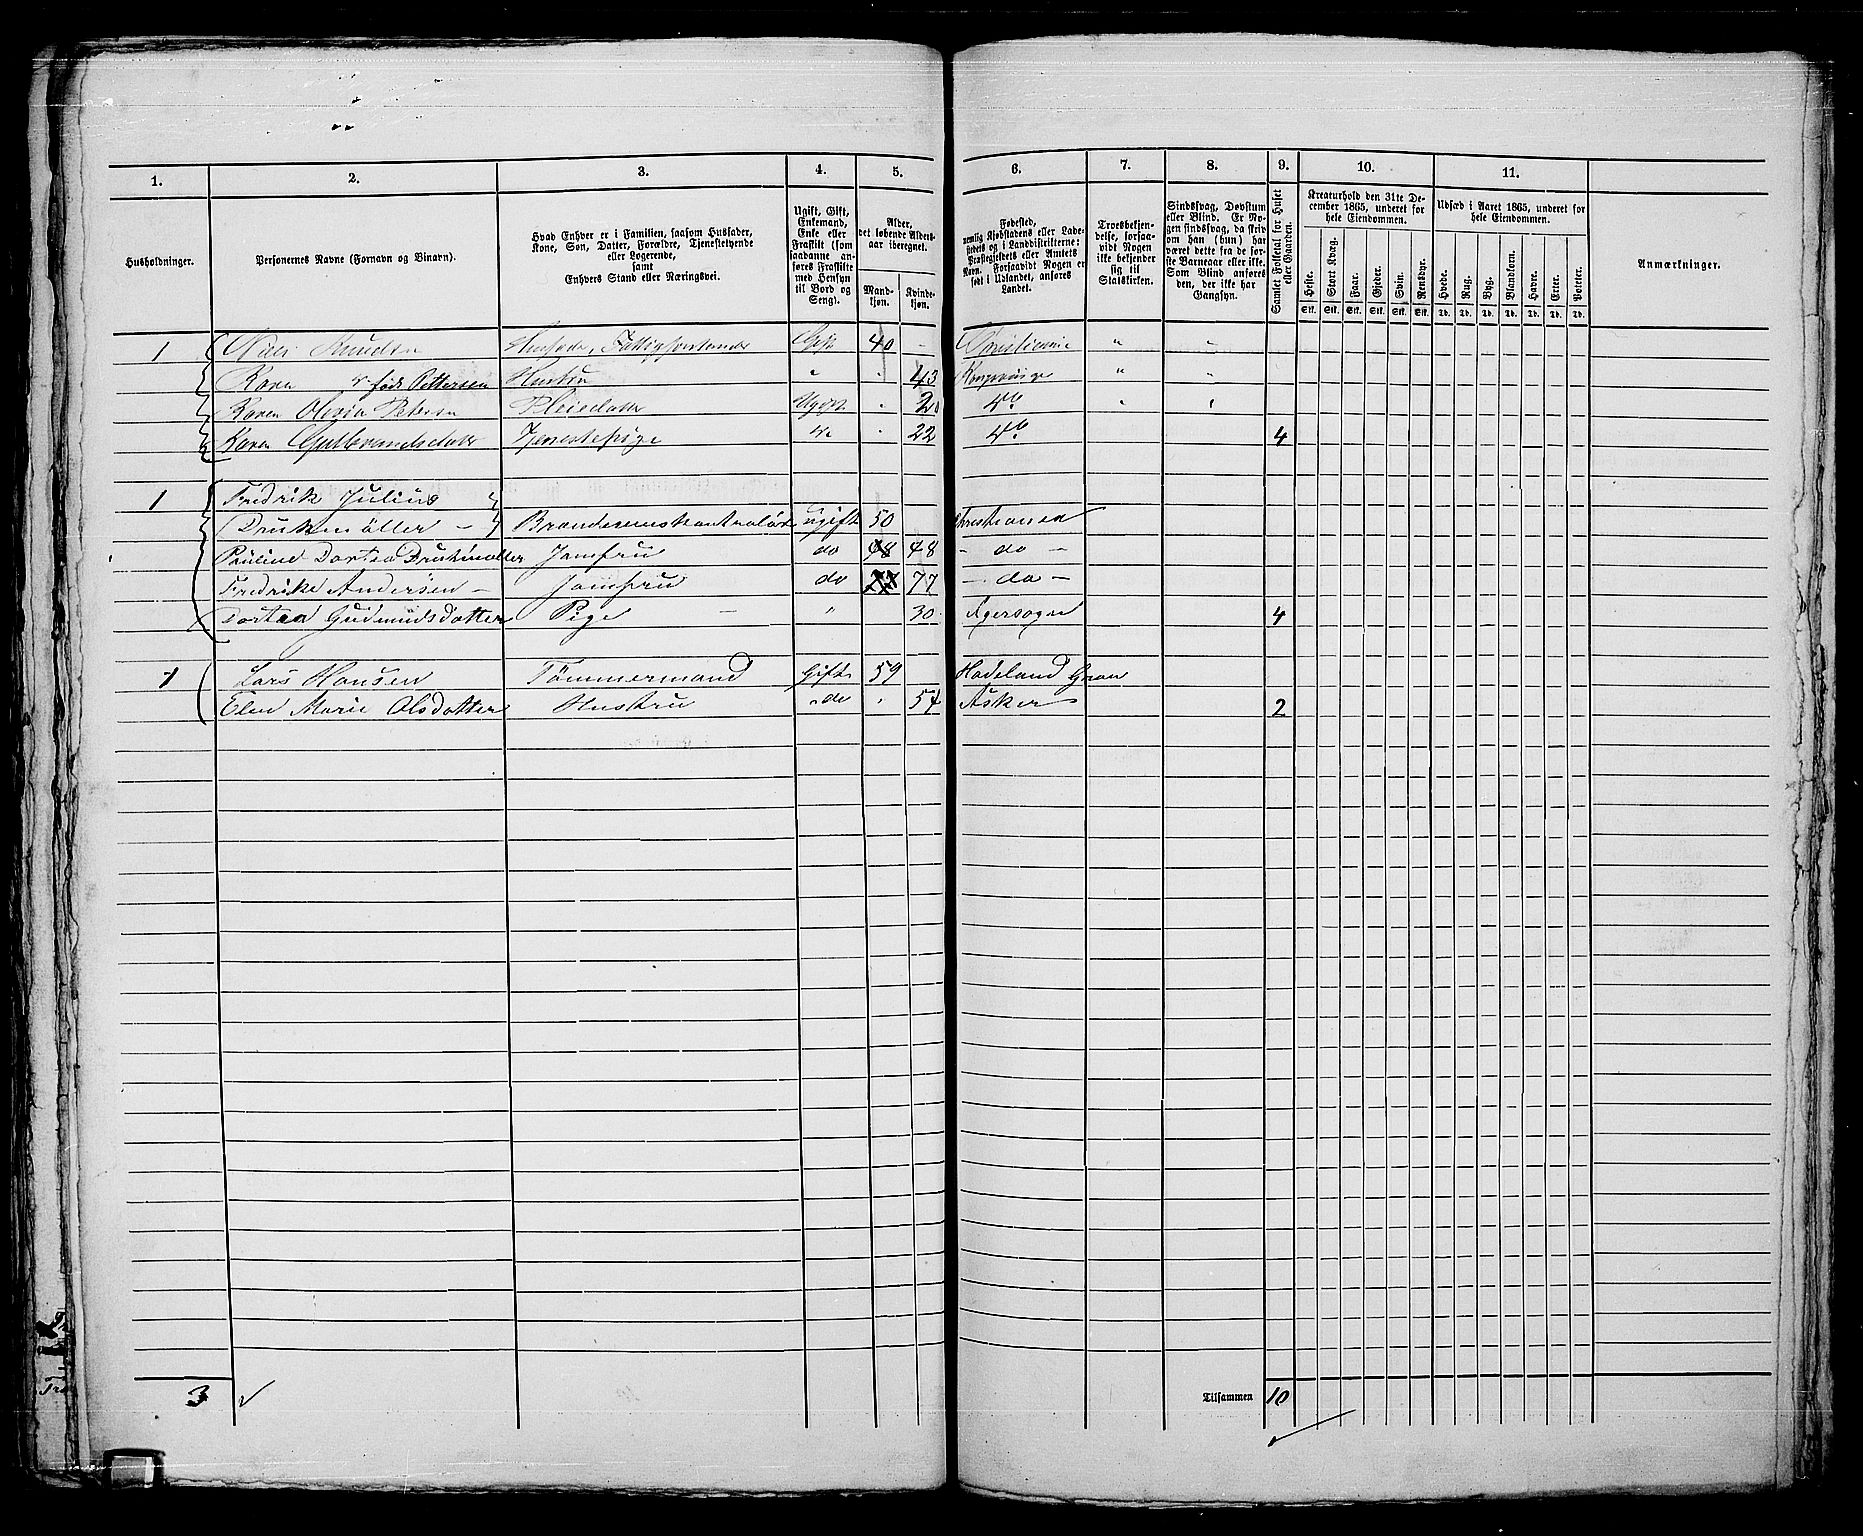 1. 2. 3. 4. 5. 6. 7. 8. 9. 10. 11.
Husholdninger.
Personernes Navne (Fornavn og Binavn).
Hvad Enhver er i Familien, saasom Husfader,
Kone, Søn, Datter, Forældre, Tjenestetyende
eller Logerende,
samt
Enhvers Stand eller Næringsvei.
Ugift, Gift,
Enkemand,
Enke eller
Fraskilt (som
saadanne an-
føres Fraskilte
med Hensyn
til Bord og
Seng).
Alder,
det løbende Alders-
aar iberegnet.
Mand-
kjøn.
Kvinde-
kjøn.
Fødested,
nemlig Kjøbstadens eller Lade-
stedets og i Landdistrikterne:
Præstegjeldets eller Amtets
Navn. Forsaavidt Nogen er
født i Udlandet, anføres
Landet.
Troesbekjen-
delse, forsaa-
vidt Nogen
ikke bekjender
sig til
Statskirken.
Sindssvag, Døvstum
eller Blind. Er No-
gen sindssvag, da skriv
om han (hun) har
været dette fra de før-
ste Barneaar eller ikke.
Som Blind anføres
den, der ikke har
Gangsyn.
Samlet Folketal for Huset
eller Gaarden.
Kreaturhold den 31te De-
cember 1865, underet for
hele Eiendommen.
Heste. Stort Kvæg. Faar. Gjeder. Svin. Rensdyr.
Stk. Stk. Stk. Stk. Stk. Stk.
Udsæd i Aaret 1865, underet for
hele Eiendommen.
Hvede. Rug. Byg. Blandkorn. Havre. Erter. Poteter.
Td. Td. Td. Td. Td. Td. Td.
Anmærkninger.
1 Niels Knudsen Husfader, Fattigforstander Gift 40 - Christiania " "
Karen " født Pettersen Hustru " " 43 Kongsvinger " "
Karen Olivia Petersen Pleiedatter Ugift " 20 do " "
Karen Gulbrandsdatter Tjenestepige do " 22 do 4
1 Fredrik Julius
Druknmöller - Brandvæsenskontrolör ugift 50 Christiania
Pauline Dortea Druknmøller Jomfru do 48 48 - do -
Fredrike Andersen - Jomfru do 77 77 - do -
Dortea Gudmundsdatter Pige - " 30 Agersogn 4
1 Lars Hansen Tömmermand Gift 59 Hadeland Gran
Elen Marie Olsdatter Hustru do " 54 Asker 2
3 Tilsammen 10